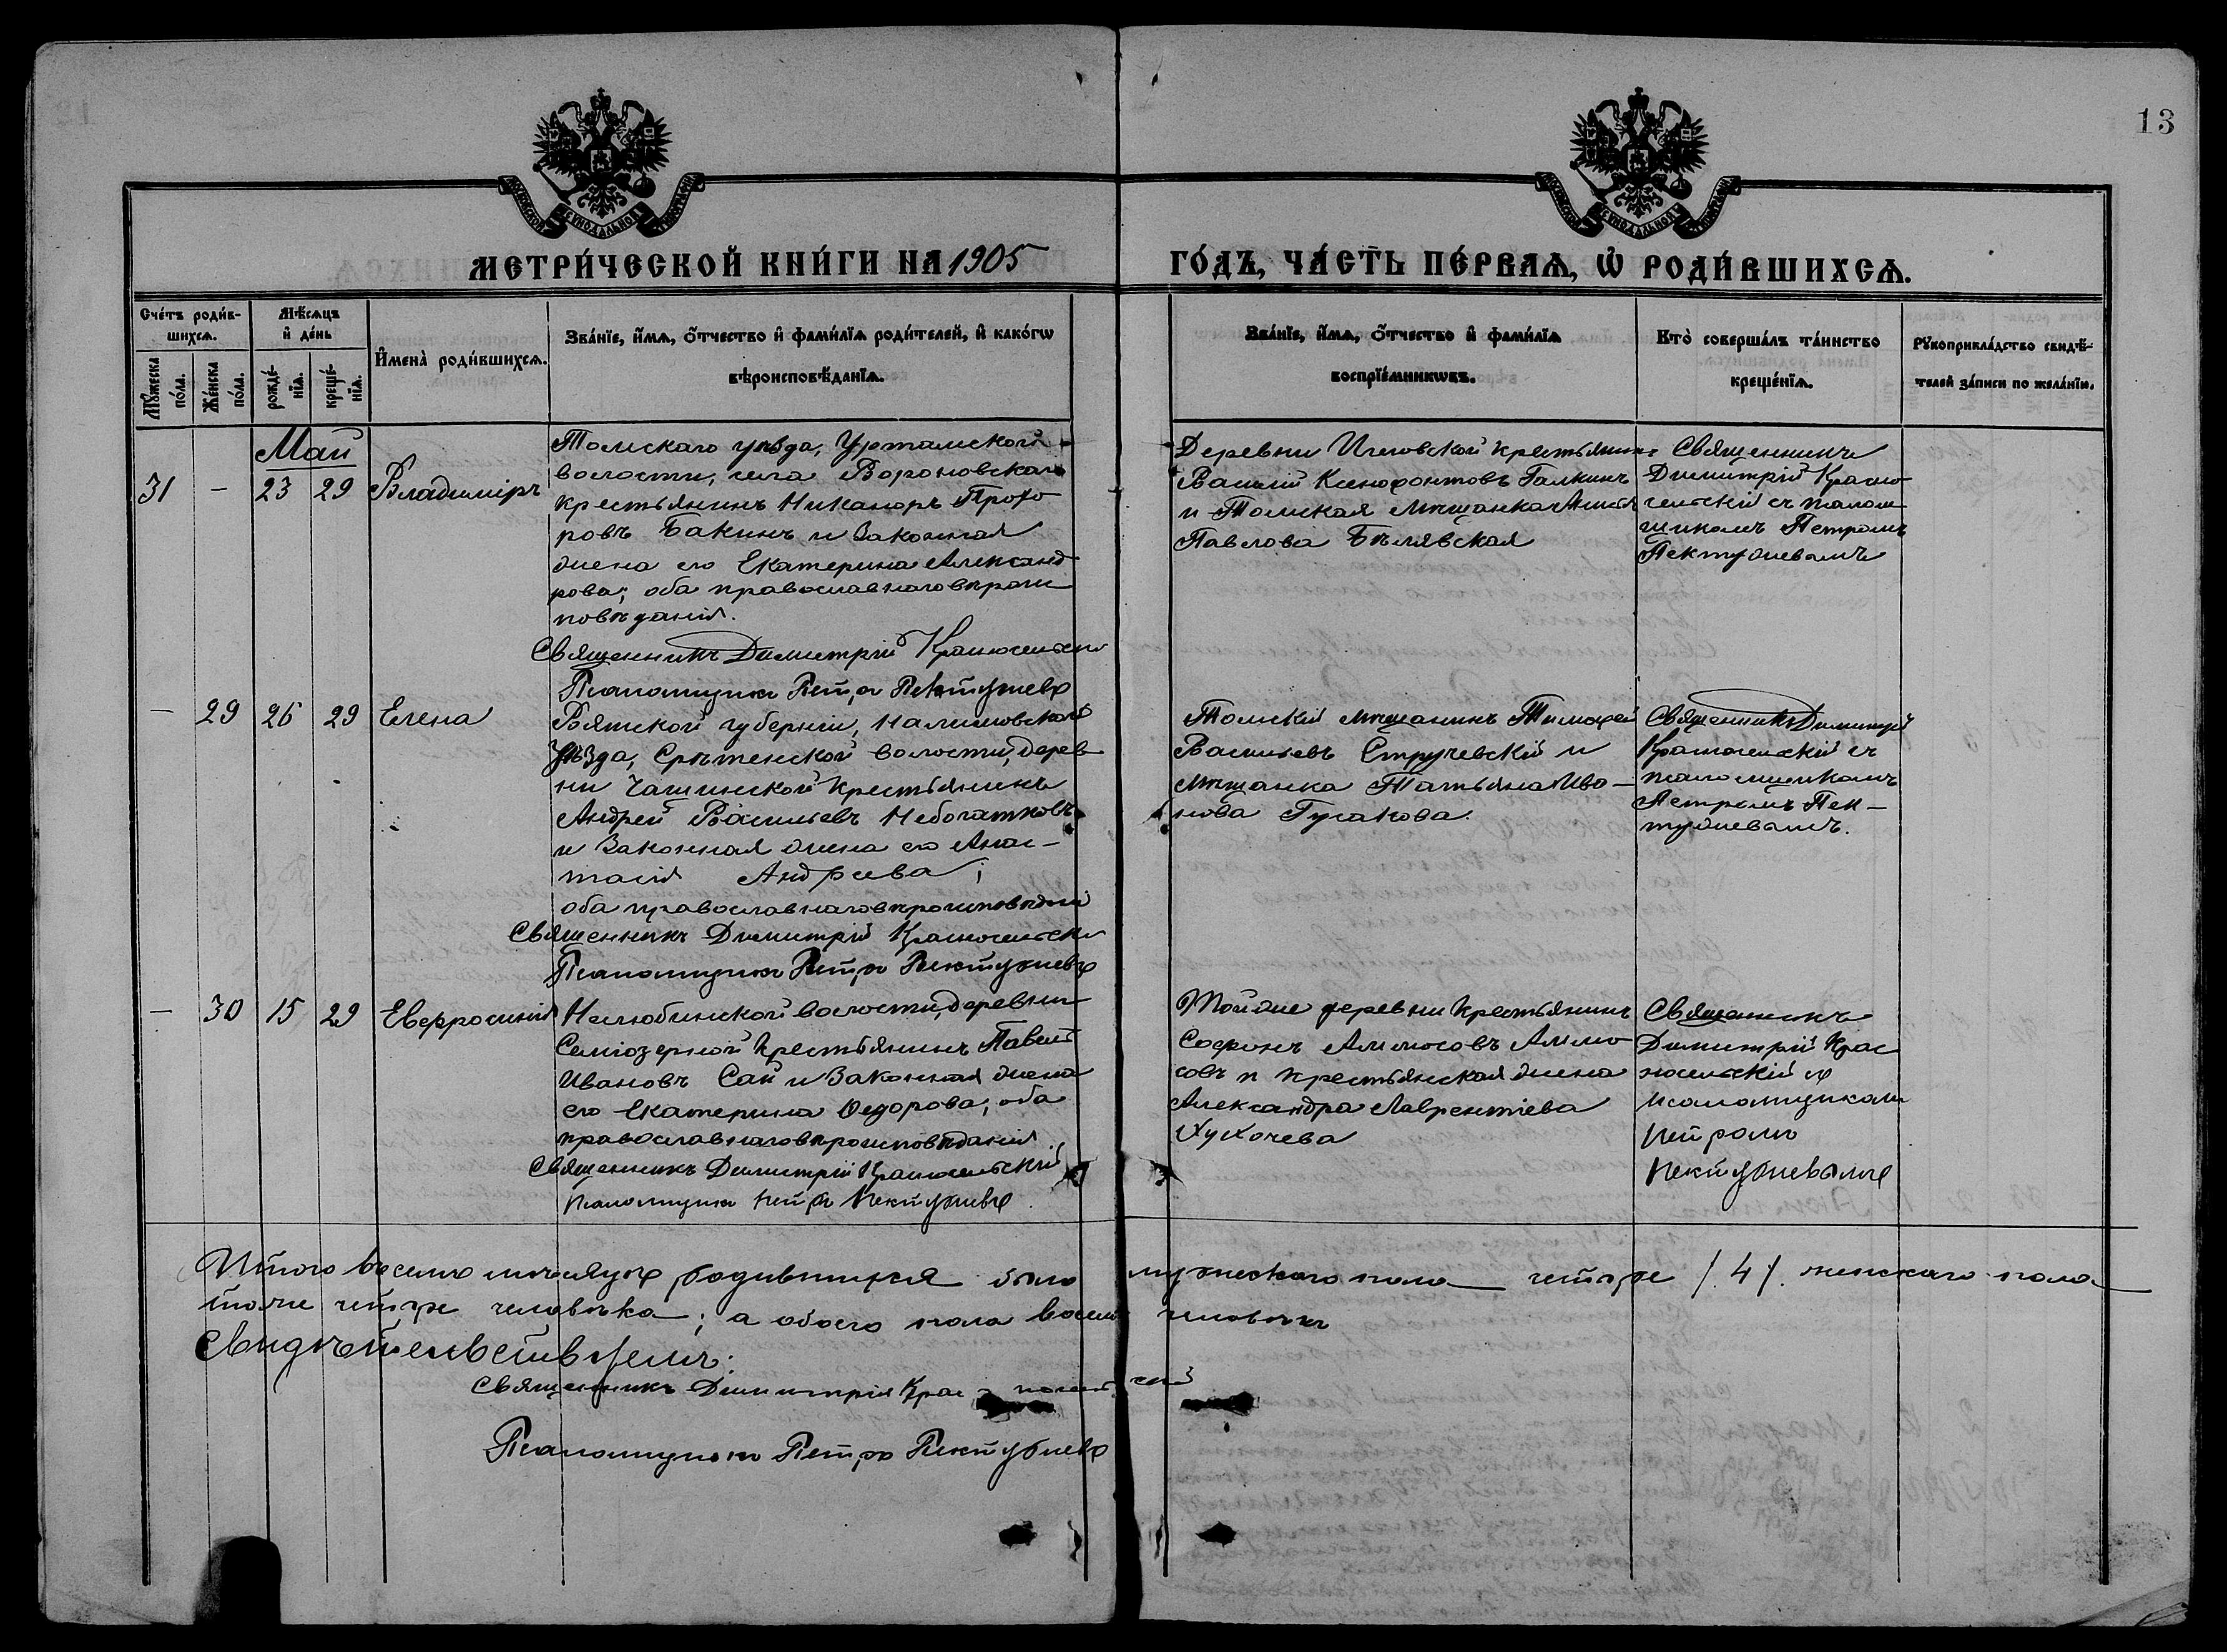 13
МЕТРИ́ЧЕСКОЙ КНИ́ГИ НА 1905
ГО́ДЪ, ЧА́СТЬ ПЕ́РВАѦ, Ѡ҆ РОДИ́ВШИХСѦ.
Сче́тъ роди́в-
шихсѧ.
Мѣ́сѧцъ
и҆ де́нь
Мꙋ́жеска
по́ла.
Же́нска
по́ла.
рожде́-
нїѧ.
креще́-
нїѧ.
И҆мена̀ роди́вшихсѧ.
Зва́нїе, и҆́мѧ, ѻ҆́тчество и҆ фамн́лїѧ роди́телей, и҆ како́гѡ
вѣроисповѣ́данїѧ.
Зва́нїе, и҆́мѧ, ѻ҆́тчество и҆ фами́лїѧ
воспрїе́мникѡвъ.
Кто̀ соверша́лъ та́инство
креще́нїѧ.
Рꙋкоприкла́дство свидѣ́-
телей за́писи по жела́нїю.
Май
31 - 23 29 Владимiръ
Томскаго уѣзда, Уртамской
волости, села Вороновскаго
крестьянинъ Никаноръ Прохо
ровъ Бакинъ и законная
жена его Екатерина Александ
рова; оба православнаго вѣроис
повѣданiя.
Священникъ Димитрiй Красносельскiй
Псаломщикъ Петръ Пектубаевъ
Деревни Крестьянинъ
Василiй Ксенофонтовъ Галкинъ
и Томская мѣщанка
Павлова Бѣлявская
Священникъ
Димитрiй Красно
сельскiй съ псалом
щикомъ Петромъ
— 29 26 29 Елена
Вятской губернiи,
Уѣзда, Срѣтенской волости, дерев
ни Чашинской крестьянинъ
Андрей Васильевъ Небогатиковъ
и законная жена его Анас-
тасiя Андреева;
оба православнаго вѣроисповѣданiя
Священникъ Димитрiй Красносельскiй
Псаломщикъ Петръ
Томскiй мѣщанинъ Тимофей
Васильевъ Стручевскiй и
мѣщанка Татьяна Ива-
нова Гусакова.
Священникъ Димитрiй
Красносельскiй съ
псаломщикомъ
Петромъ
— 30 15 29 Евфросинiя
Нелюбинской волости, деревни
Семiозерной крестьянинъ Павелъ
Ивановъ Сай и законная жена
его Екатерина Ѳедорова, оба
православнаго вѣроисповѣданiя.
Священникъ Димитрiй Красносельскiй
Псаломщикъ Петръ
Той же деревни крестьянинъ
Софонъ Аммосовъ Аммо
совъ и крестьянская жена
Александра Лаврентiева
Священникъ
Димитрiй Крас
носельскiй съ
псаломщикомъ
Петромъ
Итого въ семъ мѣсяцѣ родившихся было мужескаго пола четыре /.4/. женскаго пола
тоже четыре человѣка; а обоего пола восемь человѣкъ
Свидѣтельствуемъ:
Священникъ Димитрiй Красносельскiй
Псаломщикъ Петръ